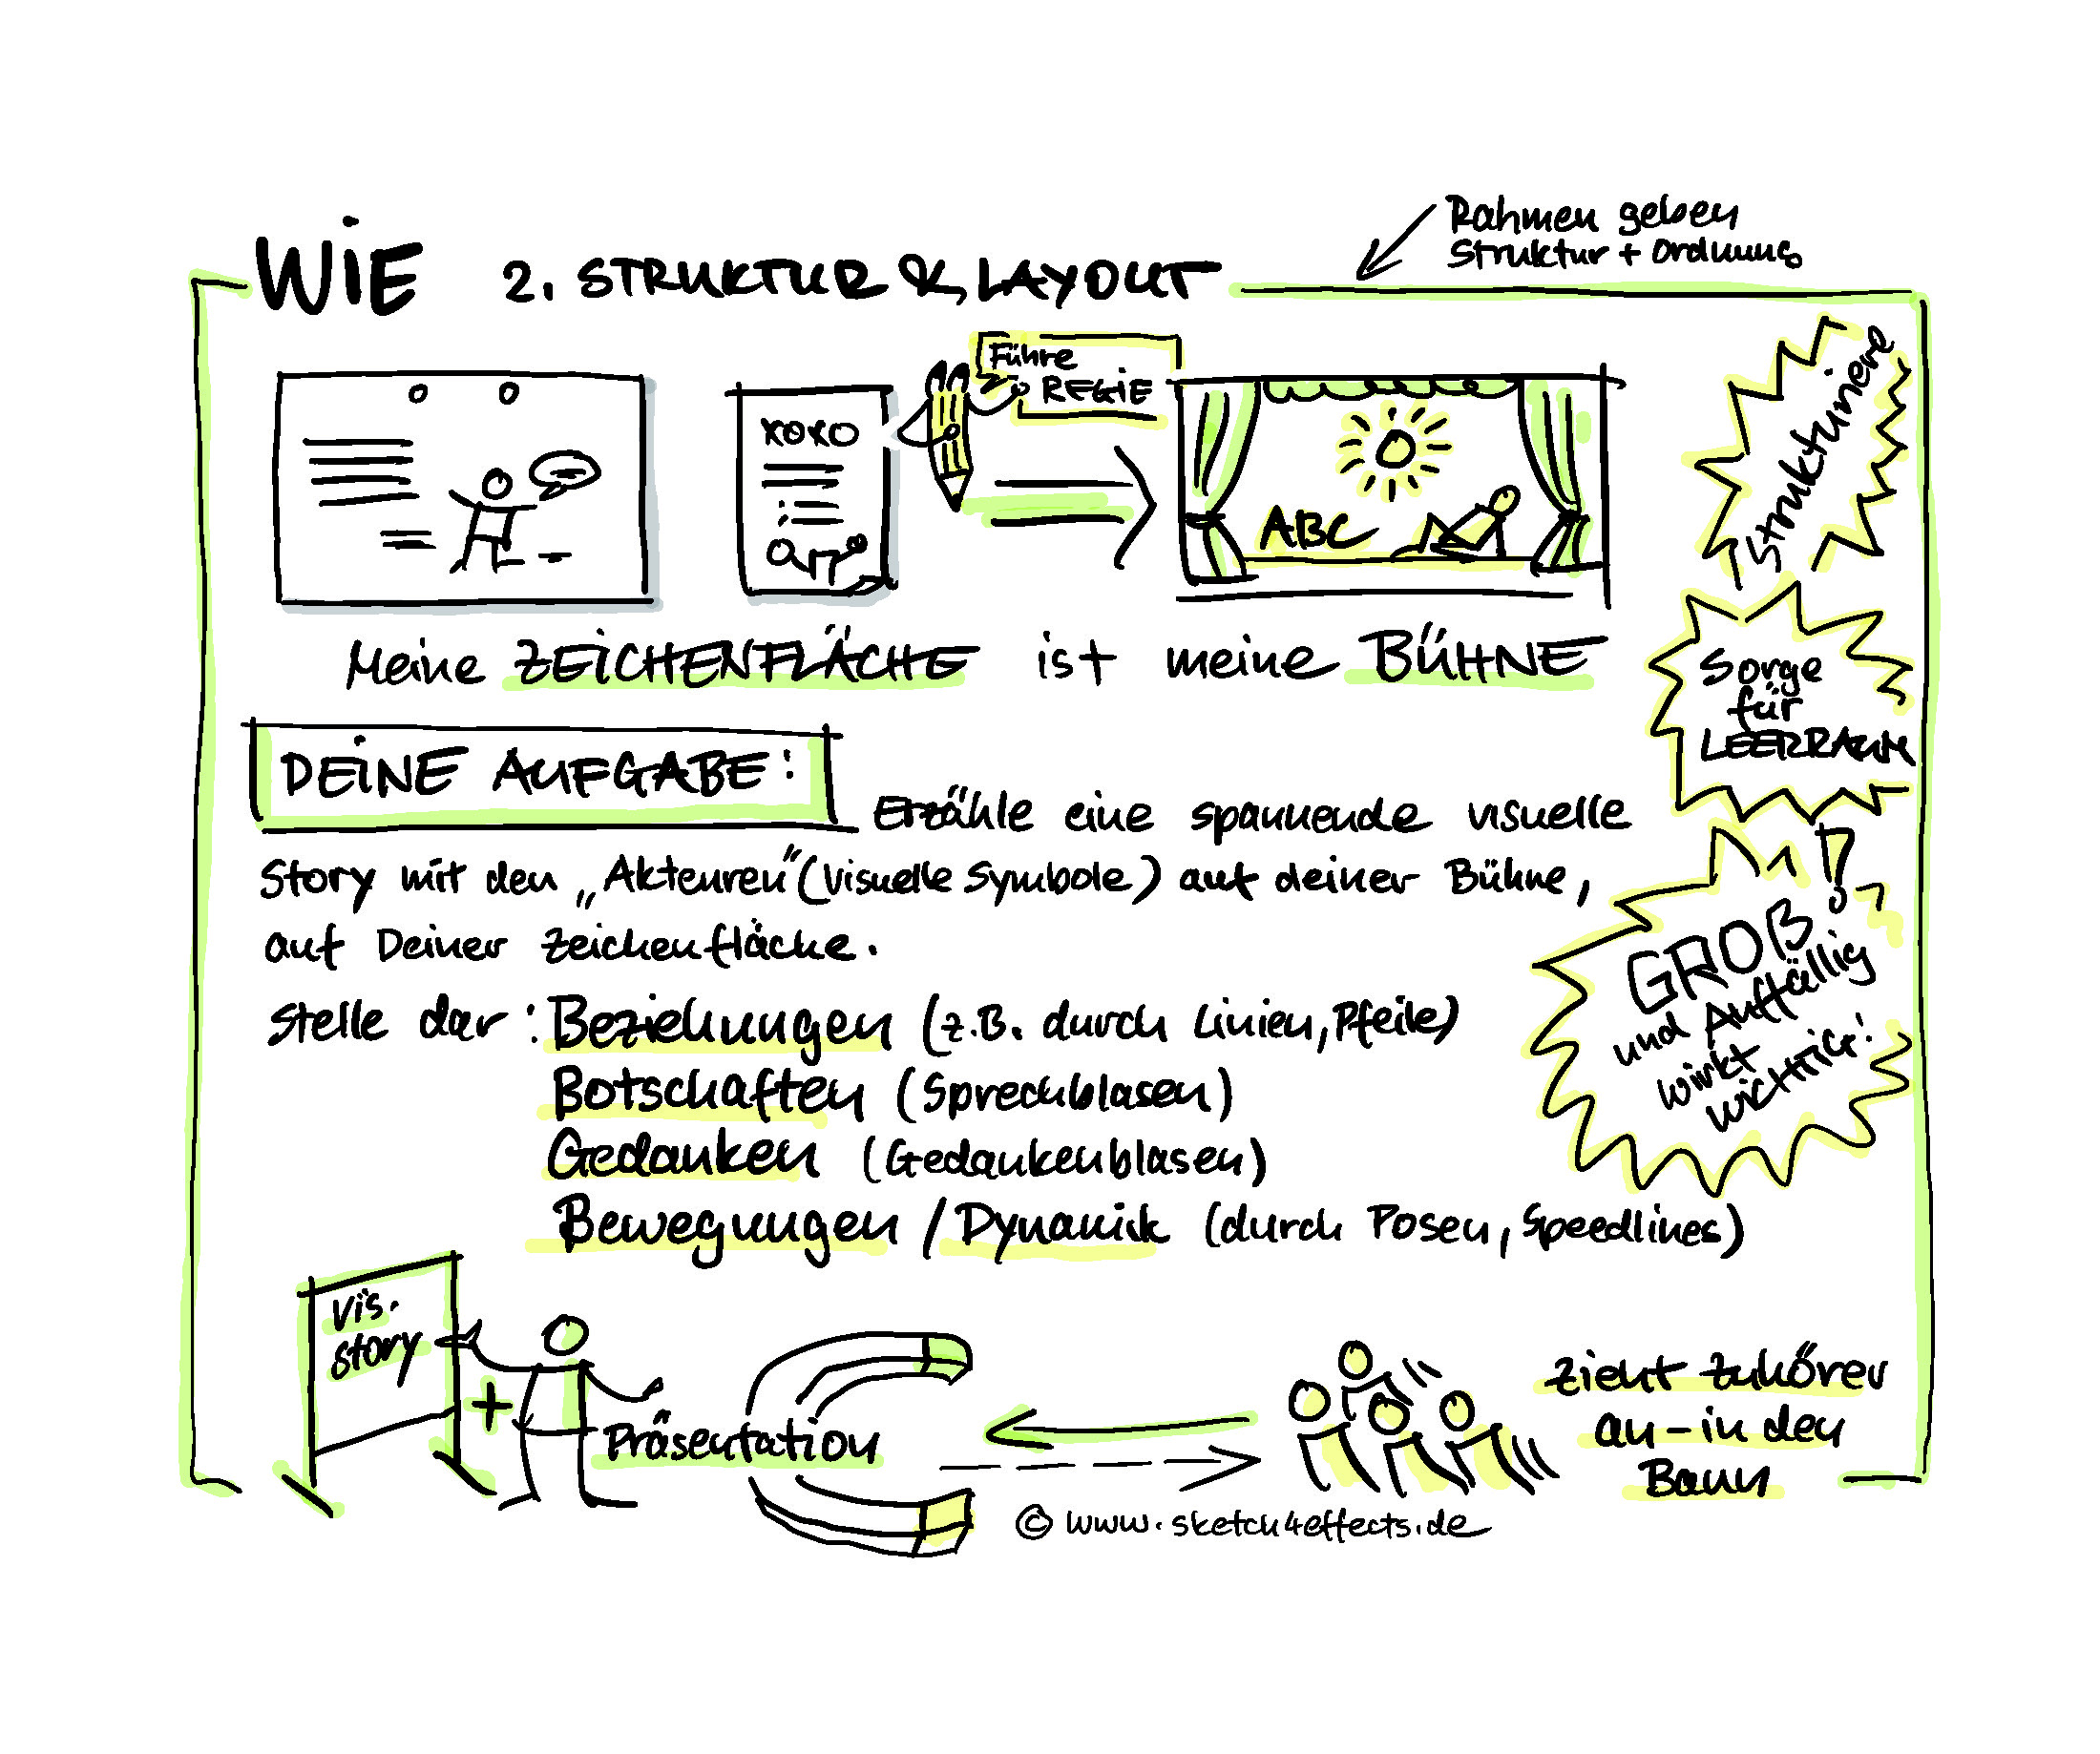 Rahmen geben
Struktur + Ordnung
WiE 2. STRUKTUR & LAYOUT
Führe
REGiE
XOXO
ABC
Strukturiere
Meine ZEiCHENFLÄCHE ist meine BÜHNE
Sorge
für
LEERRAUM
DEiNE AUFGABE:
Erzähle eine spannende visuelle
Story mit den „Akteuren" (visuelle Symbole) auf deiner Bühne,
auf Deiner Zeichenfläche.
GROß!
und Auffällig
wirkt
WICHTIG!
Stelle dar: Beziehungen (z.B. durch Linien, Pfeile)
Botschaften (Sprechblasen)
Gedanken (Gedankenblasen)
Bewegungen / Dynamik (durch Posen, Speedlines)
Vis.
story
+
Präsentation
zieht Zuhörer
an - in den
Bann
© www.sketch4effects.de